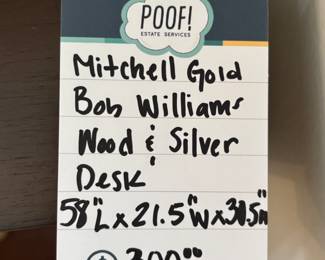 POOF!
ESTATE SERVICES
Mitchell Gold
Bob Williams
Wood & Silver
Desk
58"L x 21.5"W x 30.5"H
300.00